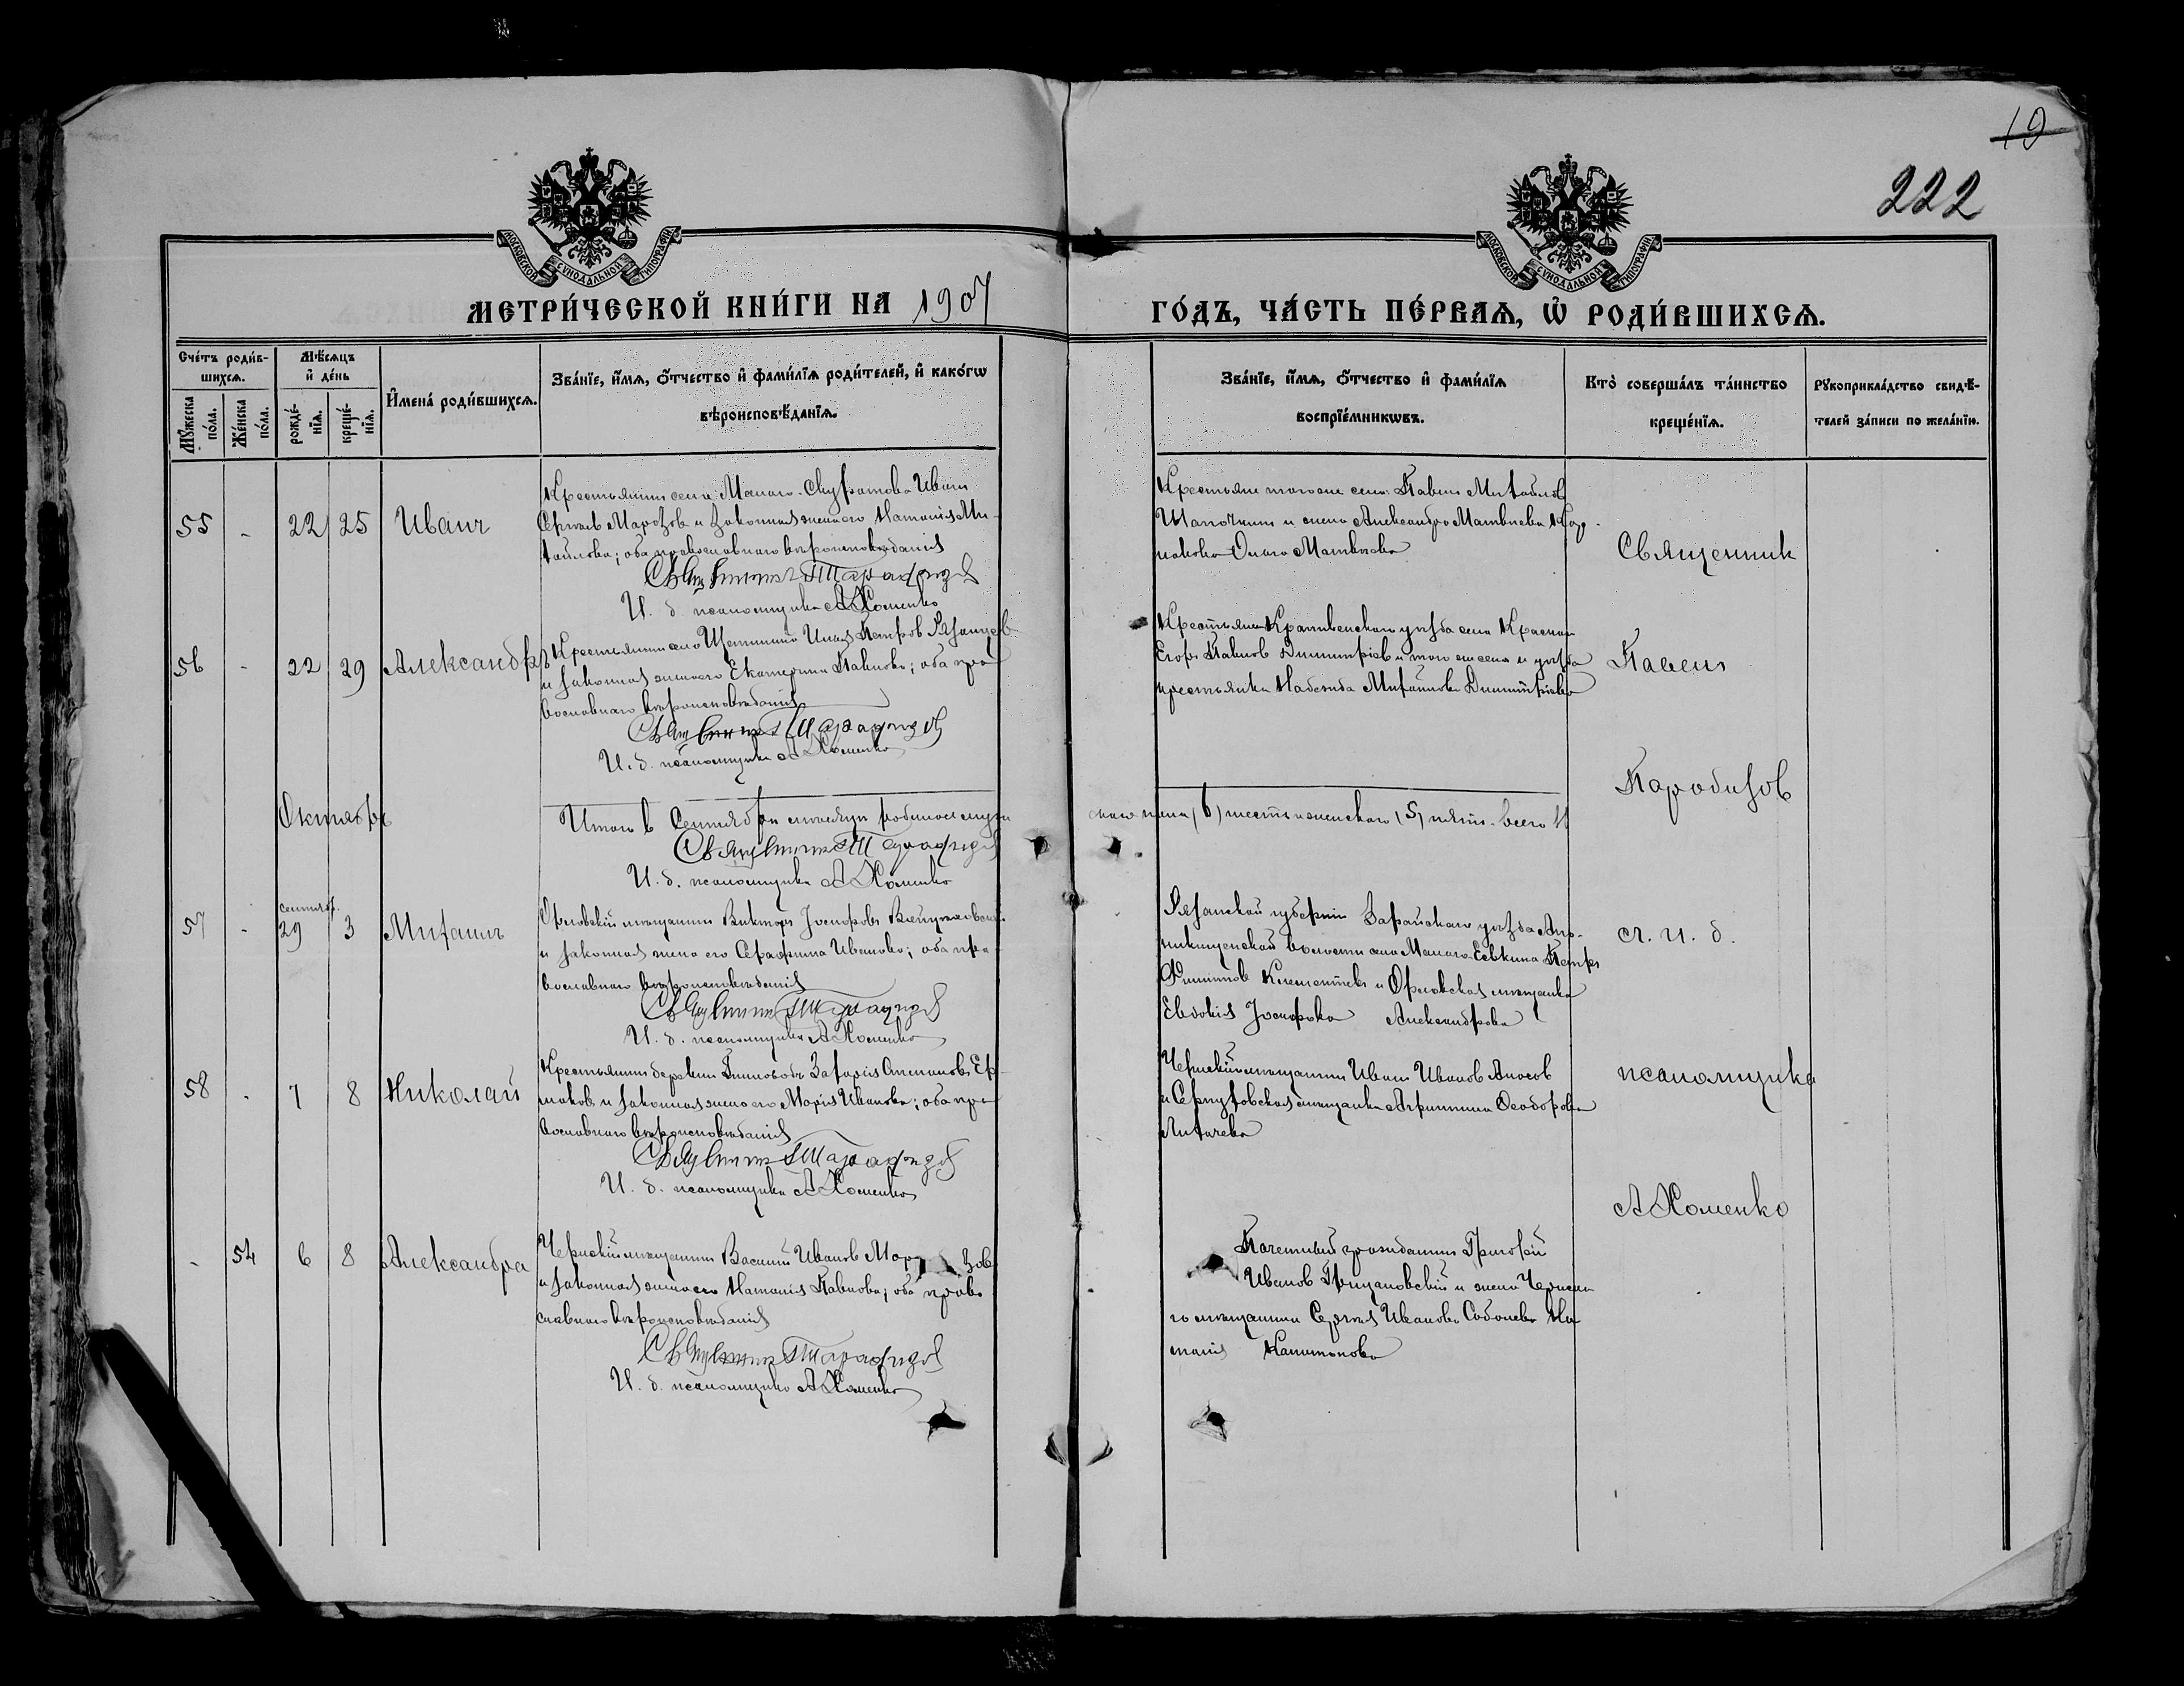 19
222
МОСКОВСКОЙ СѴНОДАЛЬНОЙ ТИПОГРАФІИ
МОСКОВСКОЙ СѴНОДАЛЬНОЙ ТИПОГРАФІИ
МЕТРИ́ЧЕСКОЙ КНИ́ГИ НА 1907
ГО́ДЪ, ЧА́СТЬ ПЕ́РВАѦ, Ѡ҆ РОДИ́ВШИХСѦ.
Сче́тъ роди́в-
шихсѧ.
Мѹ́жеска
по́ла.
Же́нска
по́ла.
Мѣ́сѧцъ
и҆ де́нь
рожде́-
нїѧ.
креще́-
нїѧ.
И҆мена̀ роди́вшихсѧ.
Зва́нїе, и҆́мѧ, ѻ҆́тчество и҆ фами́лїѧ роди́телей, и҆ како́гѡ
вѣроисповѣ́данїѧ.
Зва́нїе, и҆́мѧ, ѻ҆́тчество и҆ фами́лїѧ
воспрїе́мникѡвъ.
Кто̀ соверша́лъ та́инство
креще́нїѧ.
Рѹкоприкла́дство свидѣ́-
телей за́писи по жела́нїю.
55 - 22 25 Иванъ
Крестьянин села Малаго-Скуратова Иван
Сергѣев Марозов и законная жена его Наталия Ми-
хайлова; оба православнаго вѣроисповѣдания
И. д. псаломщика А Хоменко
Крестьяне того же села Павел Михайлов
и жена Александра Матвѣева
Ольга Матвѣева
Священник
56 - 22 29 Александръ
Крестьянин села Илья Петров
и законная жена его Екатерина Павлова; оба пра
вославнаго вѣроисповѣдания
И. д. псаломщика А Хоменко
Крестьяне Крапивенскаго уѣзда села
Егор Павлов Димитріев и того же села и уѣзда
крестьянка Надежда Михайлова Димитріева
Павел
Октябрь
Итого в Сентябрѣ мѣсяцѣ родилось муже
скаго пола (6) шесть женскаго (5) пять. всего 11
И. д. псаломщика А Хоменко
57 - сентябр. 29 3 Михаилъ
Орловскій мѣщанин Виктор Іосифов
и законная жена его Серафима Иванова; оба пра-
вославнаго вѣроисповѣдания
И. д. псаломщика А Хоменко
Рязанской губерніи Зарайскаго уѣзда
волости села Малаго Петр
Филиппов Климентьев и Орловская мѣщанка
Евдокія Іосифова Александрова
и. д.
58 - 7 8 Николай
Крестьянин деревни Захарія Ер-
маков и законная жена его Марія Иванова; оба пра
вославнаго вѣроисповѣдания
И. д. псаломщика А Хоменко
Чернскій мѣщанин Иван Иванов
и Серпуховская мѣщанка Агриппина Ѳеодорова
Лихачева
псаломщика
А Хоменко
- 54 6 8 Александра
Чернскій мѣщанин Василий Иванов Мор зов
и законная жена его Наталія Павлова; оба право
славнаго вѣроисповѣдания
И. д. псаломщика А Хоменко
Почетный гражданин Григорій
Иванов и жена Чернска
го мѣщанина Сергѣя Иванова Соболева На
талія Капитонова